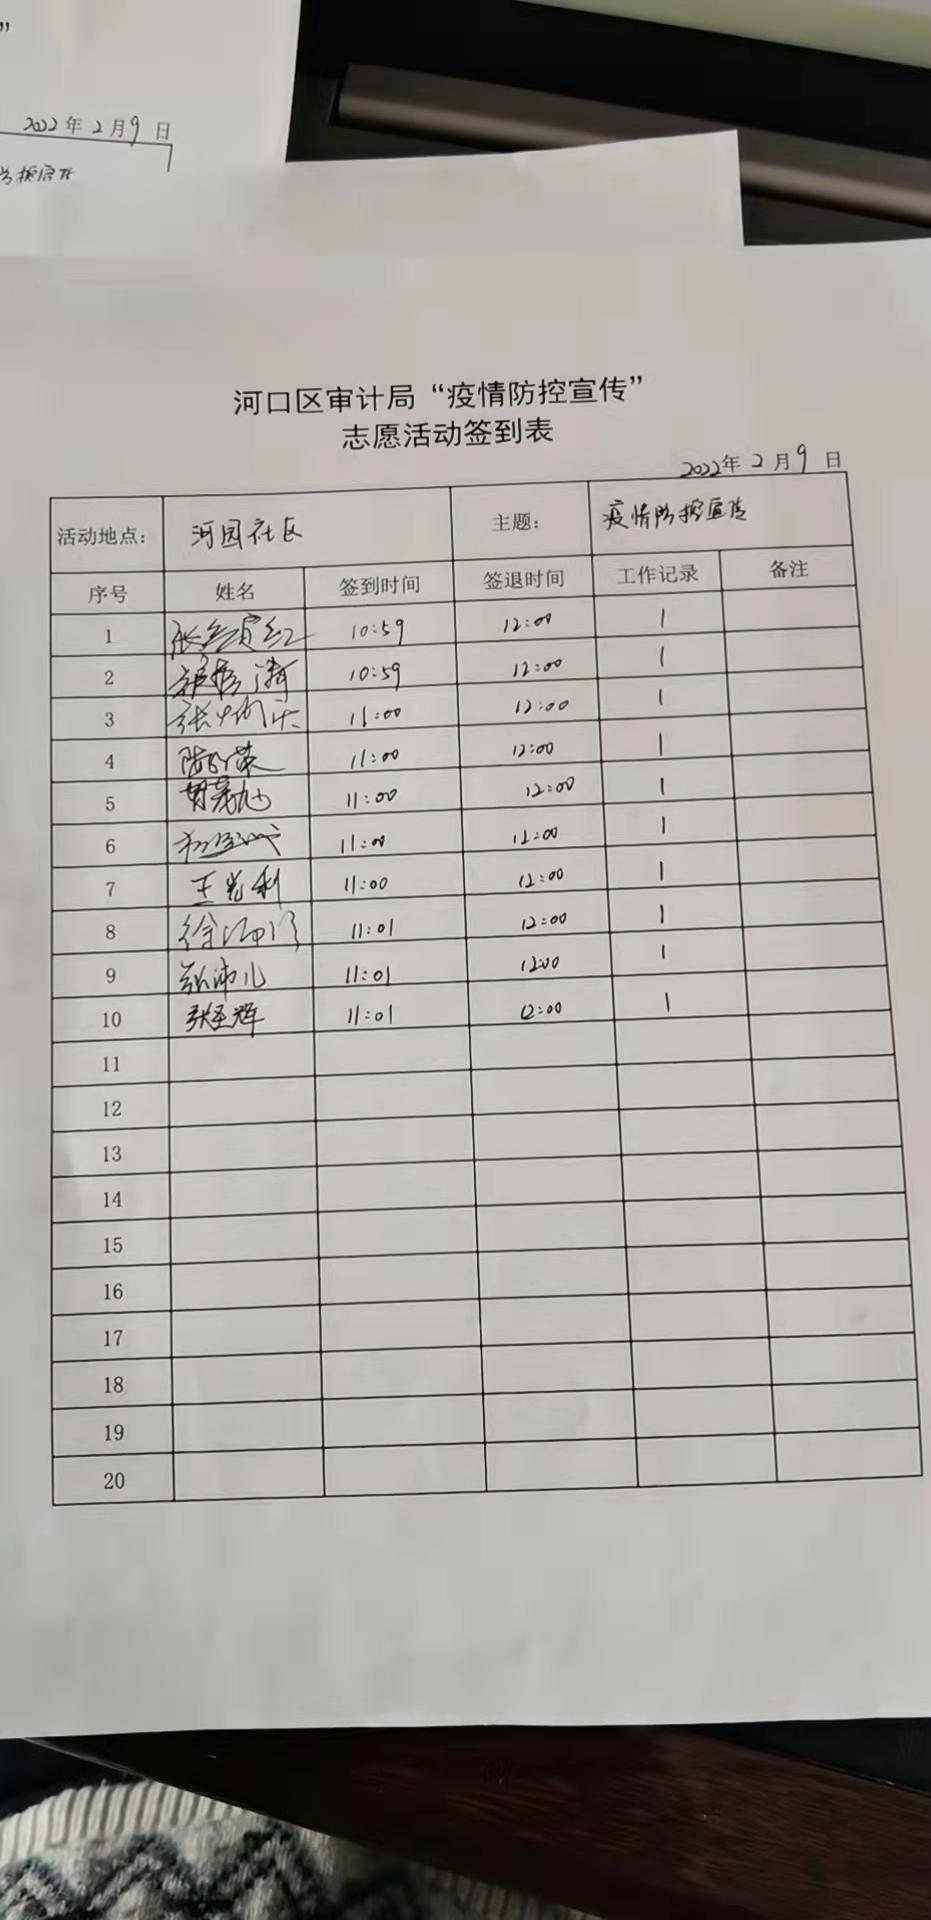 ”
2022年2月9日
河口区审计局“疫情防控宣传”
志愿活动签到表
2022年2月9日
活动地点: 河园社区 主题: 疫情防控宣传
序号 姓名 签到时间 签退时间 工作记录 备注
1 10:59 12:00 1
2 10:59 12:00 1
3 11:00 12:00 1
4 11:00 12:00 1
5 11:00 12:00 1
6 11:00 12:00 1
7 王光利 11:00 12:00 1
8 11:01 12:00 1
9 张沛儿 11:01 12:00 1
10 张圣辉 11:01 12:00 1
11
12
13
14
15
16
17
18
19
20